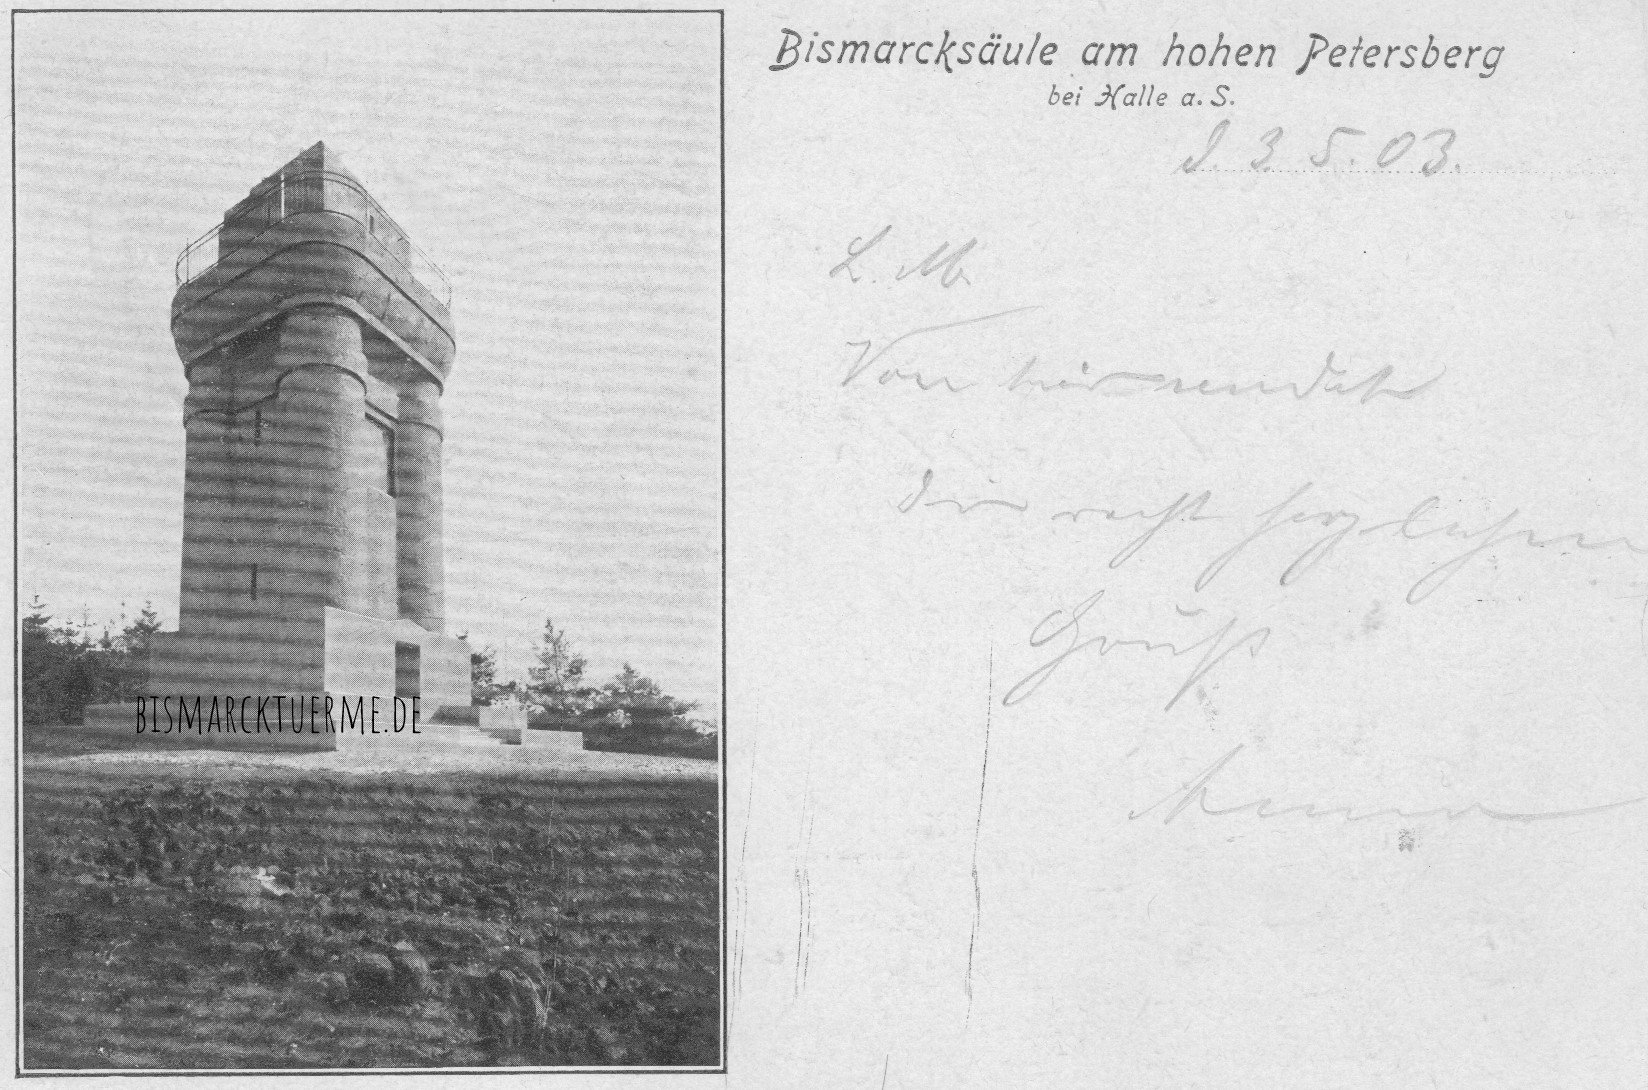 Bismarcksäule am hohen Petersberg
bei Halle a. S.
d. 3. 5. 03.
L. M.
Von hier sendet
Dir recht herzlichen
Gruß
BISMARCKTUERME.DE